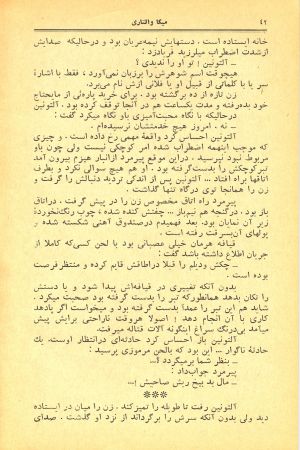 ۴۲ میکا والتاری
خانه ایستاده است . دستهایش نیمه‌عریان بود و درحالیکه صدایش
ازشدت اضطراب میلرزید فریادزد :
ـ آلتونین! تو او را ندیدی ؟
هیچوقت اسم شوهرش را برزبان نمی‌آورد ، فقط با اشارهٔ
سر یا با گفتن از قبیل او یا فلانی ازش نام می‌برد.
زن تازه از ده برگشته بود . برای خرید پاره‌ئی از مایحتاج
خود به‌ده رفته و مدت یکساعت هم در آنجا توقف کرده بود . آلتونین
درحالیکه با نگاه محبت‌آمیزی باو نگاه میکرد گفت :
ـ نه ... امروز هیچ خدمتشان نرسیده‌ام .
آلتونین احساس کرد واقعهٔ مهمی رخ داده است . و چیزی
که موجب اینهمه اضطراب شده امر کوچکی نیست ولی چون باو
مربوط نبود نپرسید . دراین موقع پیرمرد ازانبار هیزم بیرون آمد
تبرکوچکش را بدست‌گرفته بود . او هم هیچ سوالی نکرد و بطرف
اتاقها براه افتاد ... آلتونین پس از اندکی تردید دنبالش را گرفت و
زن را همانجا توی درگاه تنها گذاشت .
پیرمرد راه اتاق مخصوص زن را در پیش گرفت . دراتاق
باز بود . درگنجه هم نیم‌باز ... جفتش کنده شده ، چوب رنگ‌نخوردهٔ
زیر آن نمایان بود. بعد فهمیدم درصندوق آهنی شکسته شده و
پولهای آن‌بسرقت رفته است .
قیافه هرمان خیلی عصبانی بود با لحن کسی‌که کاملا از
جریان اطلاع داشته باشد گفت :
ـ چکش ودیلم را قبلا دراطاقش قایم کرده و منتظرفرصت
بوده است .
بدون آنکه تغییری در قیافه‌اش پیدا شود و یا دستش
را تکان بدهد همانطورکه تبر را بدست گرفته بود صحبت میکرد .
شاید هم این تبر را عمدا بدست گرفته بود و میخواست اگر پایدهد
کاری با آن انجام دهد ! اصولا هروقت ناراحتی برایش پیش
میامد بی‌درنگ سراغ اینگونه آلات قتاله میرفت.
آلتونین باز احساس کرد حادثه‌ای درانتظار اوست. یك
حادثهٔ ناگوار ... این بود که بالحن مرموزی پرسید :
ـ بنظر شما برمیگردد ؟...
پیرمرد جواب‌داد :
ـ مال بد بیخ ریش صاحبش !...
***
آلتونین رفت تا طویله را تمیزکند . زن را میان در ایستاده
دید ولی بدون آنکه سرش را برگرداند از نزد او گذشت . صدای